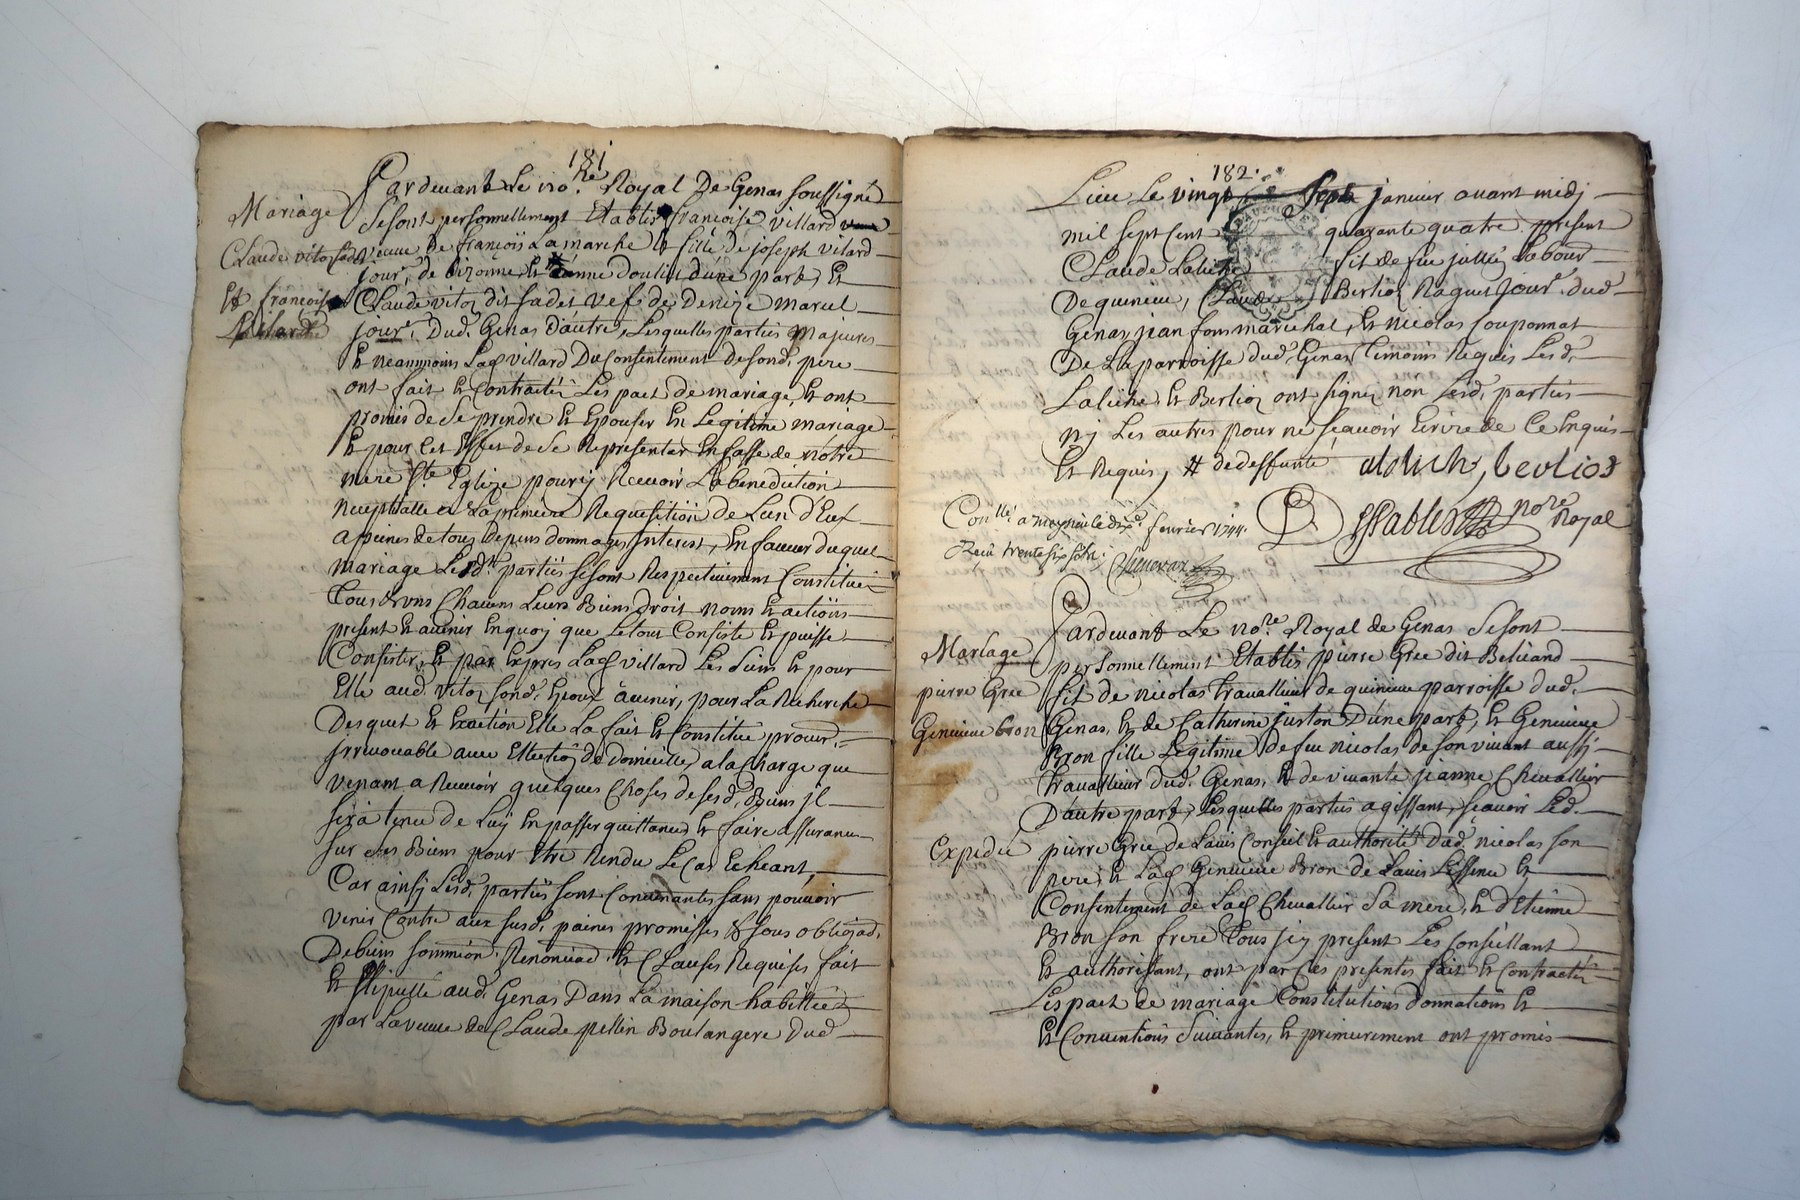 181
Pardevant Le no.re Royal De Genas soussigné
Mariage
Claude vitoz fadet
Et françoise
Vilard
Se sont personnellement Etablis françoise villard
veuve De françois Lamarche Et fille de joseph vilard
jour.r de Et d'une part, Et
Claude vitoz dit fadet vef de Denize marcel
jour.r Dud. Genas D'autre, Lesquelles parties majeures
Et neammoins Lad villard Du Consentement de sond. pere
ont fait Et Contracté Les pact de mariage, Et ont
promis de Se prendre Et Epouser En Legitime mariage
Et pour Cet Effet de Se Representer En fasse de nôtre
mere Ste Eglize pour y Recevoir La benediction
nuptialle a La premiere Requesition de L'un d'Eux
a peines de tous Depens dommages Interest, En faveur duquel
mariage Lesd. parties se sont Respectivement Constitué
Tous Leurs Biens droit noms Et actions
present Et avenir En quoy que Le tout Consiste Et puisse
Consister, Et par Expres Lad villard Les Siens Et pour
Elle aud. vitoz sond. Epoux à venir, pour La Recherche
Desquel Et Exaction Elle La fait Et Constitue procur.
jrrevocable avec Ellection de domicille, a la Charge que
venant a Recevoir quelques Choses de sesd. Biens jl
sera tenu de Luy En passer quittance Et faire assurance
sur ses Biens pour Etre Rendu Le Cas Echeant,
Car ainsy Lesd. parties sont Convenantes sans pouvoir
venir Contre aux susd. peines promisses & sous obligaõ.
De biens Renonciaõ. Et Clauses Requises fait
Et stipullé aud. Genas Dans La maison habittée
par La veuve de Claude pellin Boulangere Dud
182.
Lieu Le vingt Sept janvier avant midj
mil sept Cent quarante quatre present
Claude Laliche fit de feu Labour
De quinieu, Claude Berlioz Raquet jour.r dud
Genas, jean fons marechal, Et nicolas Couponnat
De La parroisse dud. Genas Temoins Requis Lesd.
Laliche Et Berlioz ont signez non Lesd. parties
nj Les autres pour ne sçavoir Ecrire de Ce Enquis
Et Requis, # de deffunte alaliche, berlios
no.re Royal
Con.llé a meyzieu le fevrier 1744.
Reçu trente six sols
Mariage
pierre Gree
Genevieve Bron
Expedié
Pardevant Le no.re Royal de Genas Se sont
personnellement Etablis pierre Gree dit Belicand
fit de nicolas travallieur de quinieu parroisse dud.
Genas, Et de Catherine juston D'une part, Et Genevieve
Bron fille Legitime de feu nicolas de son vivant aussj
travallieur dud. Genas, Et de vivante jeanne Chevallier
D'autre part, Lesquelles parties agissant, sçavoir Led.
pierre Gree de L'avis Conseil Et authorité Dud. nicolas son
pere, Et Lad Genevieve Bron de L'avis Et
Consentement de Lad Chevallier Sa mere, Et d'Etienne
Bron son frere Tous jcy present Les Conseillant
Et authorisant, ont par Ces presentes fait Et Contracté
Les pact de mariage Constitutions donnations Et
Et Conventions Suivantes, Et premierement ont promis